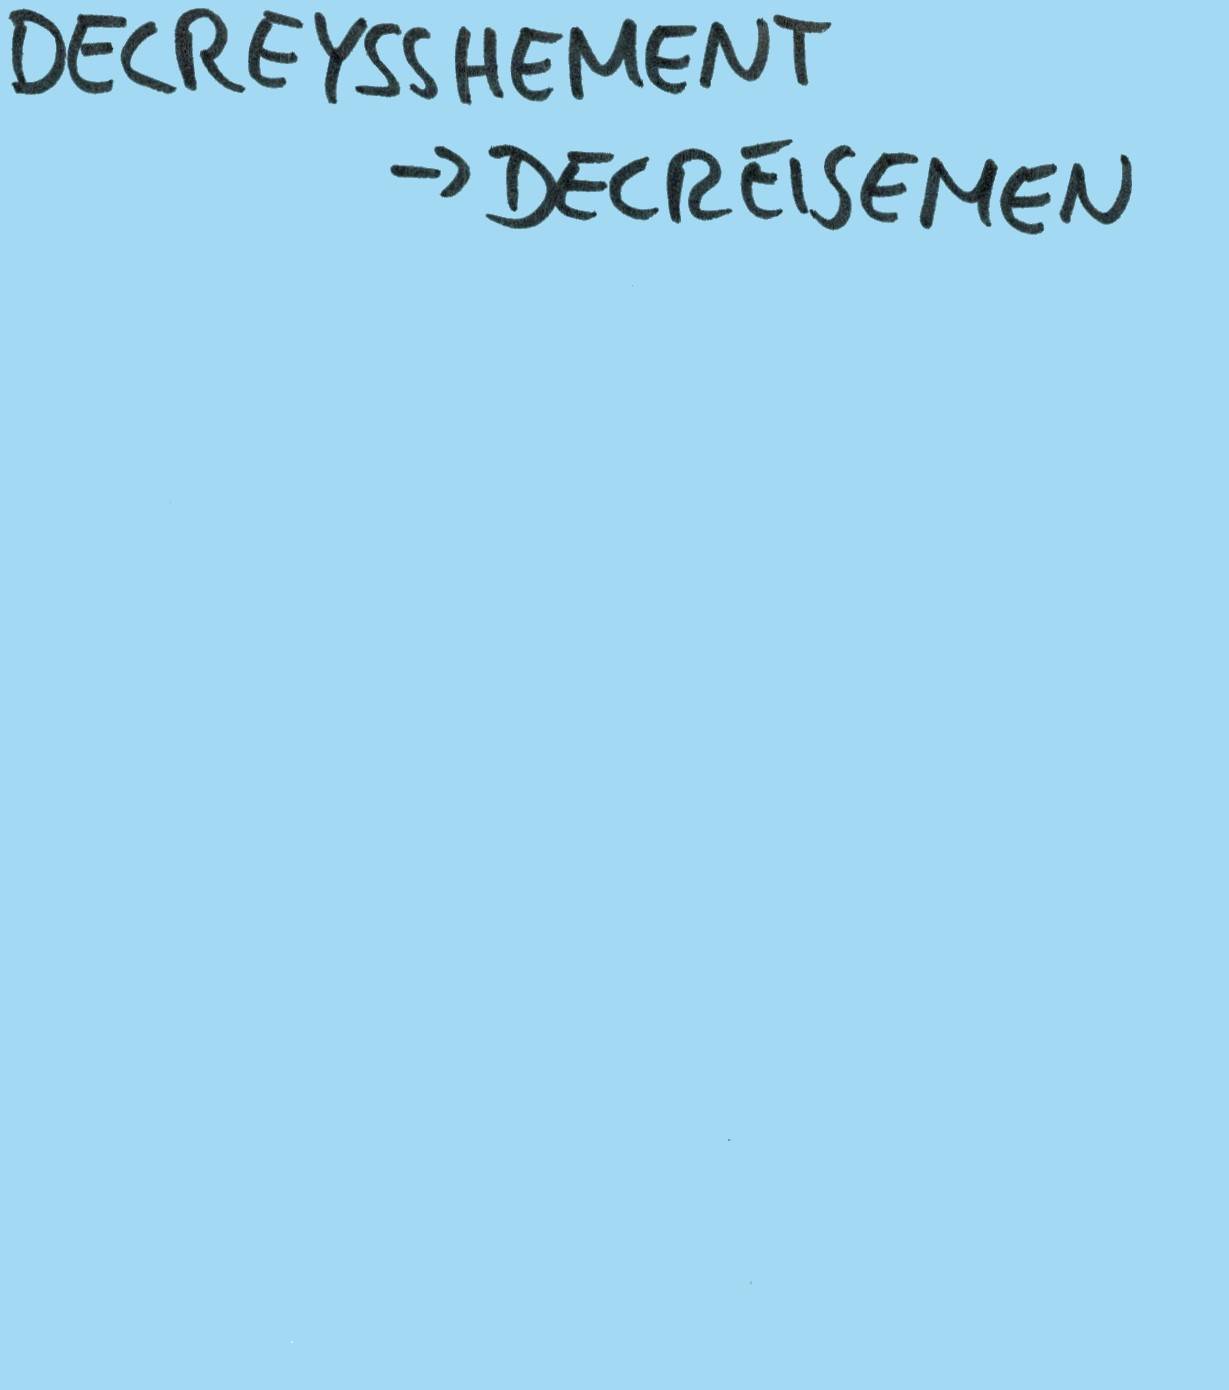 DECREYSSHEMENT
-> DECREISEMEN